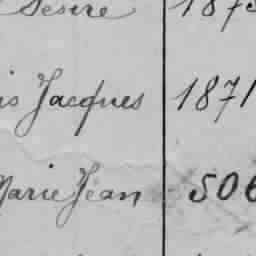 Désiré 187
is Jacques 1871
Marie Jean 506